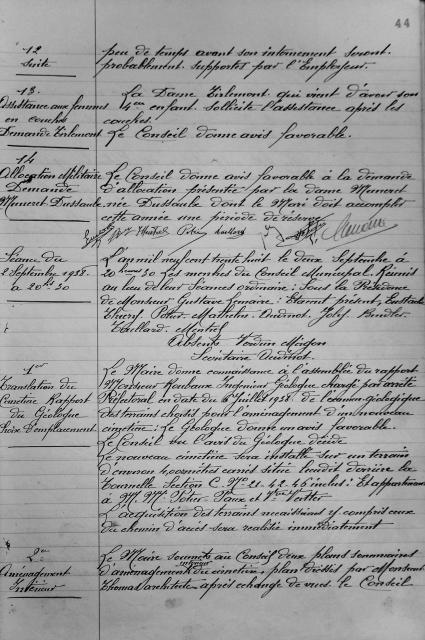 44
12
Suite
peu de temps avant son internement seront
probablement supportés par l'Employeur.
13
Assistance aux femmes
en couches
Demande Tirlemont
La Dame Tirlemont qui vient d'avoir son
4em enfant. Sollicite l'assistance après les
couches.
Le Conseil donne avis favorable.
14
Allocation Militaire
Demande
Meneret Dussaule
Le Conseil donne avis favorable à la demande
d'allocation présentée par la dame Meneret
née Dussaule dont le Mari doit accomplir
cette année une période de réserve
Séance du
2 Septembre 1938
à 20h 30
L'an mil neuf cent trente huit le deux Septembre à
20 heures 30 Les membres du Conseil Municipal Réunis
au lieu de leur séances ordinaire : Sous la Présidence
de Monsieur Gustave Lemaire : Etaient présents,
Thierry Potier Mathelin Oudinot. Joly
Houllard. Menhel
Absents
Secrétaire Oudinot.
1er
Translation du
Cimetière Rapport
du Géologue
Choix d'emplacement
Le Maire donne connaissance à l'assemblée du rapport
Monsieur Roubaux Ingénieur Géologue chargé par arrêté
Préfectoral en date du 6 Juillet 1938 de l'examen géologique
des terrains choisis pour l'aménagement d'un nouveau
cimetière ; Le Géologue donne un avis favorable.
Le Conseil vu l'avis du Géologue décide
Le nouveau cimetière sera installé sur un terrain
d'environ 4.000 mètres carrés situé lieudit derrière la
Tournelle Section C Nos 21. 42. 46 inclus : Et appartenant
à M. Mrs Potier Paux et Vve
L'acquisition des terrains nécessaires y compris ceux
du chemin d'accès sera réalisé immédiatement
2em
Aménagement
Intérieur
Le Maire soumets au Conseil deux plans sommaires
d'aménagement intérieur du cimetière, plan dressés par Monsieur
Thomas architecte, après échange de vues le Conseil